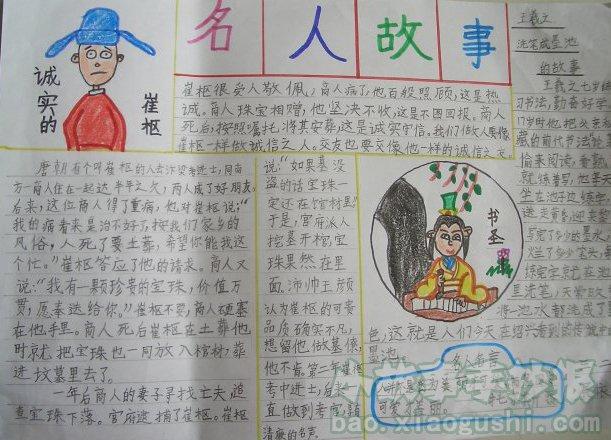 名人故事
诚实的
崔枢
崔枢很受人敬佩,商人病了,他百般照顾,这是热
诚。商人珠宝相赠,他坚决不收,这是不图回报。商人
死后,按照嘱托,将其安葬,这是诚实守信。我们做人要像
崔枢一样做诚信之人。交友也要交像他一样的诚信之友
唐朝有个叫崔枢的人去汴梁考进士,同南
方一商人住在一起达半年之久,两人成了好朋友。
后来,这位商人得了重病,他对崔枢说:“
我的病看来是治不好了,按我们家乡的
风俗,人死了要土葬,希望你能我这
个忙。”崔枢答应了他的请求。商人又
说:“我有一颗珍贵的宝珠,价值万
贯,愿奉送给你。”崔枢不要,商人硬塞
在他手里。商人死后崔枢在土葬他
时就把宝珠也一同放入棺材,葬
进坟墓里去了。
一年后商人的妻子寻找亡夫,追
查宝珠下落。官府逮捕了崔枢。崔枢
说“如果墓没
盗的话宝珠一
定还在馆材里”
于是,官府派人
挖墓开棺宝
珠果然在里
面。沛帅王颜
认为崔枢的可贵
品质确实不凡,
想留他做幕僚,
他不肯。第二年崔枢
考中进士,后来一
直做到考官,
清廉的名声。
王羲之
洗笔成墨池
的故事
王羲之七岁练
习书法,勤奋好学
17岁时他把父亲秘
藏的前代书法
偷来阅读,看熟
就练着写,他每天
坐在池子边练字,
送走黄昏,迎来
写完了多少的墨水,
烂了多少笔头,
练完字就在池
里洗笔,天常日久
将一池水都洗成了
色,这就是人们今天在绍兴看到的传说中
墨池
书圣
名人名言
小故事手抄报
bao.xiaogushi.com